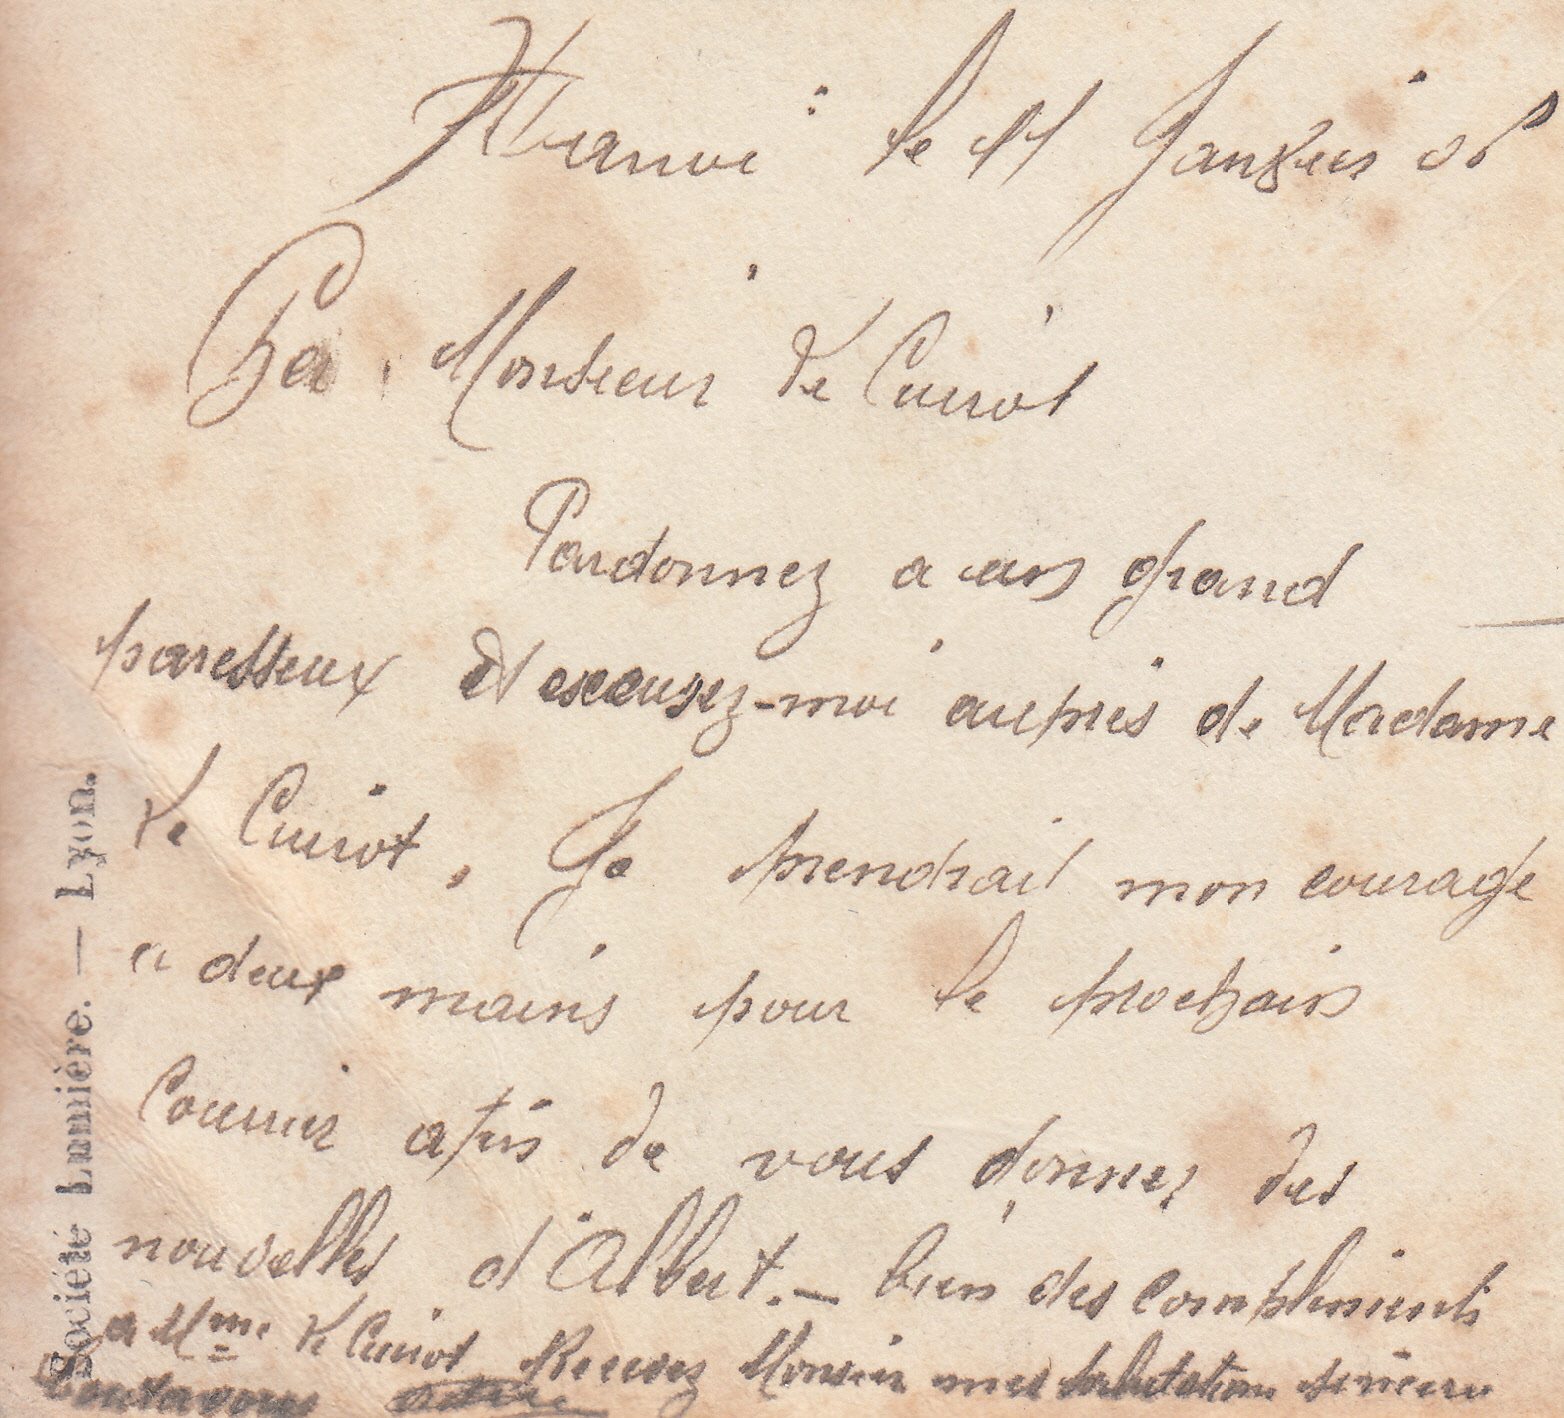 Hanoi le 11 Janvier 06
Cher Monsieur de Cuirot
Pardonnez a un grand
paresseux et excusez-moi auprès de Madame
de Cuirot, Je prendrait mon courage
a deux mains pour le prochain
Courrier afin de vous donner des
nouvelles d'Albert. — bien des compliments
a Mme de Cuirot Recevez Monsieur mes salutations sincere
Société Lumière. — Lyon.